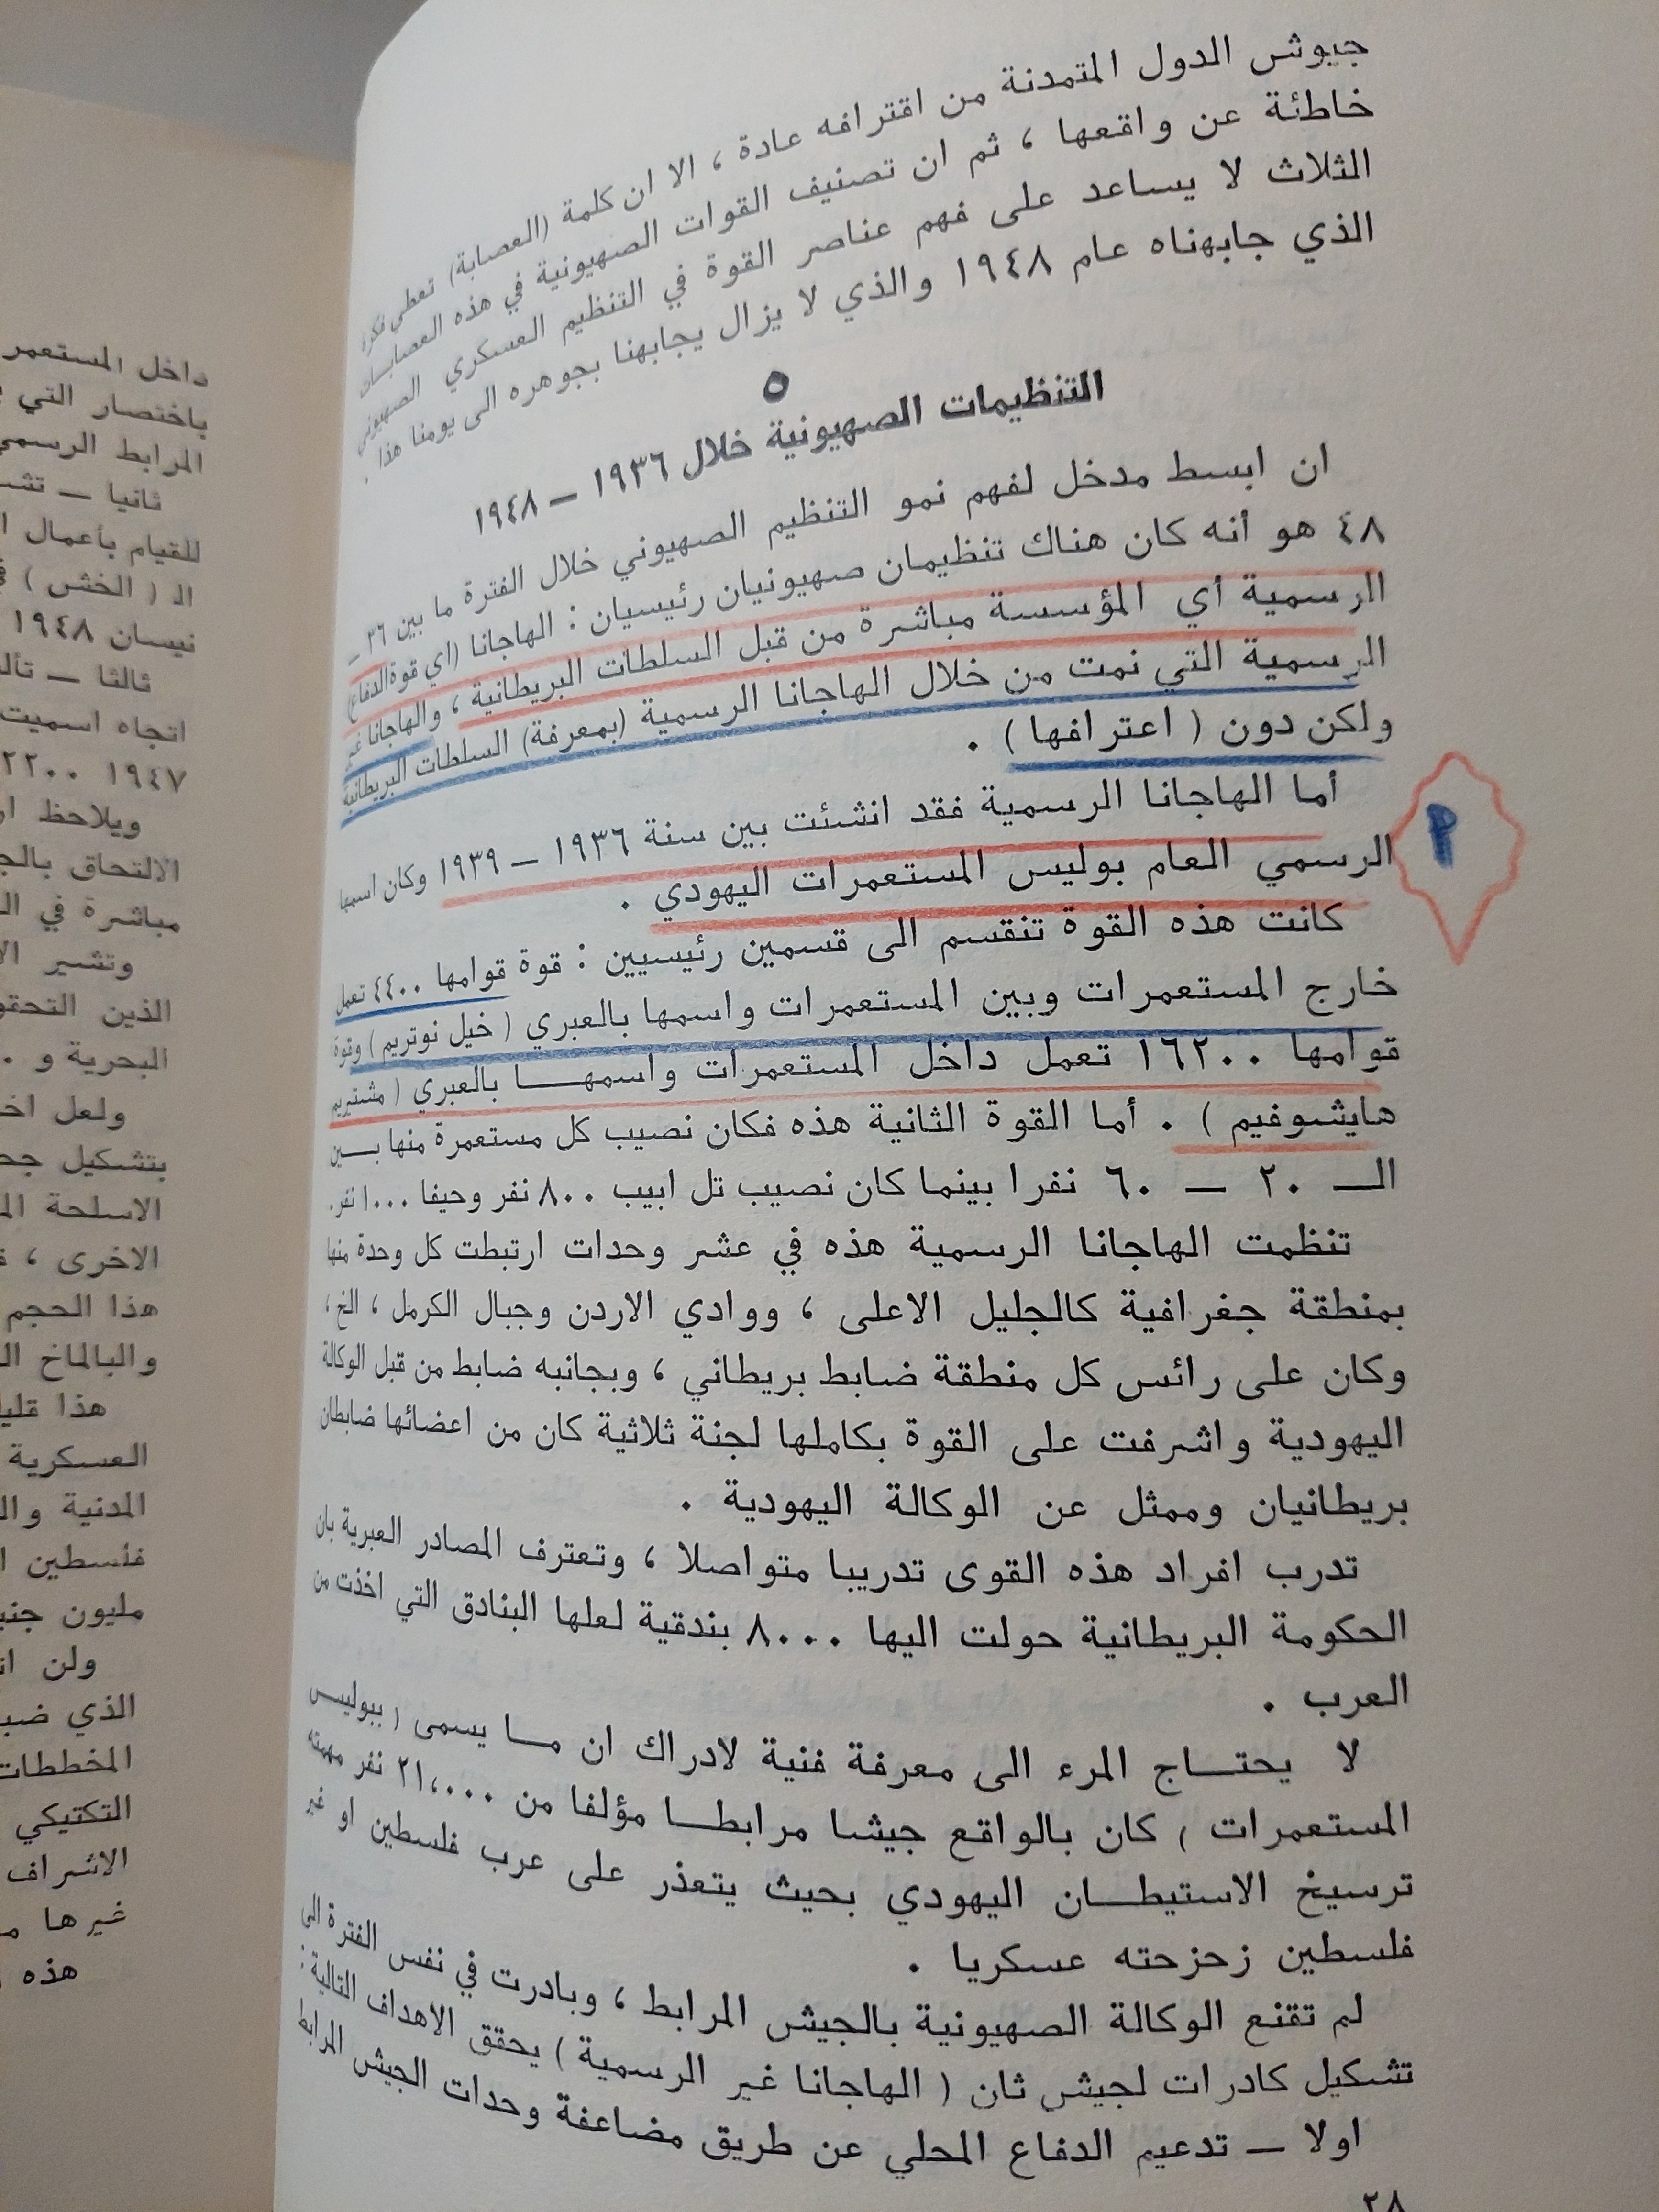 جيوش الدول المتمدنة من اقترافه عادة ، الا ان كلمة (العصابة) تعطي فكرة
خاطئة عن واقعها ، ثم ان تصنيف القوات الصهيونية في هذه العصابات
الثلاث لا يساعد على فهم عناصر القوة في التنظيم العسكري الصهيوني
الذي جابهناه عام ١٩٤٨ والذي لا يزال يجابهنا بجوهره الى يومنا هذا .
٥
التنظيمات الصهيونية خلال ١٩٣٦ – ١٩٤٨
ان ابسط مدخل لفهم نمو التنظيم الصهيوني خلال الفترة ما بين ٣٦ –
٤٨ هو أنه كان هناك تنظيمان صهيونيان رئيسيان : الهاجانا (اي قوة الدفاع)
الرسمية أي المؤسسة مباشرة من قبل السلطات البريطانية ، والهاجانا غير
الرسمية التي نمت من خلال الهاجانا الرسمية (بمعرفة) السلطات البريطانية
ولكن دون ( اعترافها ) .
أما الهاجانا الرسمية فقد انشئت بين سنة ١٩٣٦ – ١٩٣٩ وكان اسمها
الرسمي العام بوليس المستعمرات اليهودي .
كانت هذه القوة تنقسم الى قسمين رئيسيين : قوة قوامها ٤٤٠٠ تعمل
خارج المستعمرات وبين المستعمرات واسمها بالعبري ( خيل نوتريم ) وقوة
قوامها ١٦٢٠٠ تعمل داخل المستعمرات واسمهــا بالعبري ( مشتيريم
هايشوفيم ) . أما القوة الثانية هذه فكان نصيب كل مستعمرة منها بــين
الــ ٢٠ – ٦٠ نفرا بينما كان نصيب تل ابيب ٨٠٠ نفر وحيفا ١٠٠٠ نفر.
تنظمت الهاجانا الرسمية هذه في عشر وحدات ارتبطت كل وحدة منها
بمنطقة جغرافية كالجليل الاعلى ، ووادي الاردن وجبال الكرمل ، الخ ،
وكان على رائس كل منطقة ضابط بريطاني ، وبجانبه ضابط من قبل الوكالة
اليهودية واشرفت على القوة بكاملها لجنة ثلاثية كان من اعضائها ضابطان
بريطانيان وممثل عن الوكالة اليهودية .
تدرب افراد هذه القوى تدريبا متواصلا ، وتعترف المصادر العبرية بان
الحكومة البريطانية حولت اليها ٨٠٠٠ بندقية لعلها البنادق التي اخذت من
العرب .
لا يحتــاج المرء الى معرفة فنية لادراك ان مــا يسمى ( ببوليس
المستعمرات ) كان بالواقع جيشا مرابطــا مؤلفا من ٢١،٠٠٠ نفر مهمته
ترسيخ الاستيطــان اليهودي بحيث يتعذر على عرب فلسطين او غير
فلسطين زحزحته عسكريا .
لم تقنع الوكالة الصهيونية بالجيش المرابط ، وبادرت في نفس الفترة الى
تشكيل كادرات لجيش ثان ( الهاجانا غير الرسمية ) يحقق الاهداف التالية :
اولا – تدعيم الدفاع المحلي عن طريق مضاعفة وحدات الجيش المرابط
٢٨
داخل المستعمر
باختصار التي
المرابط الرسمي
ثانيا – تشـ
للقيام بأعمال
الـ ( الخش )
نيسان ١٩٤٨
ثالثا – تأل
اتجاه اسميت
١٩٤٧ ٢٢٠٠
ويلاحظ
الالتحاق بالج
مباشرة في
وتشير
الذين التحقو
البحرية و
ولعل
بتشكيل
الاسلحة
الاخرى ،
هذا الحجم
والبالماخ
هذا قليـ
العسكرية
المدنية
فلسطين
مليون جني
ولن
الذي
المخططات
التكتيكي
الاشراف
غيرها
هذه